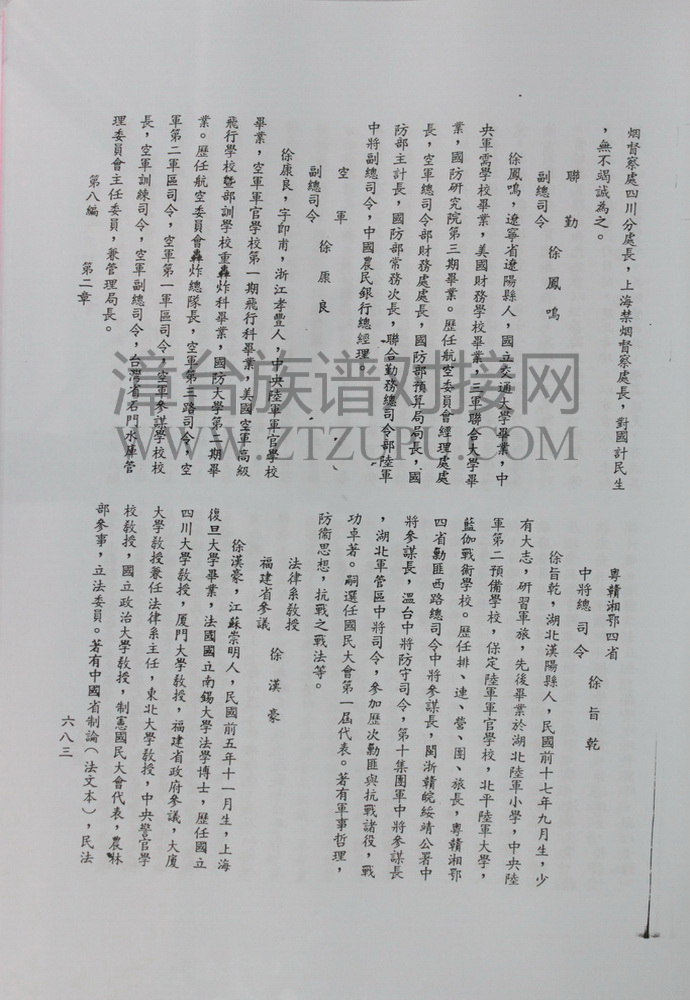 烟督察處四川分處長，上海禁烟督察處長，對國計民生
，無不竭誠為之。
聯勤
副總司令　徐鳳鳴
徐鳳鳴，遼寧省遼陽縣人，國立交通大學畢業，中
央軍需學校畢業，美國財務學校畢業，三軍聯合大學畢
業，國防研究院第三期畢業。歷任航空委員會經理處處
長，空軍總司令部財務處處長，國防部預算局局長，國
防部主計長，國防部常務次長，聯合勤務總司令部陸軍
中將副總司令，中國農民銀行總經理。
空軍
副總司令　徐康良
徐康良，字即甫，浙江孝豐人，中央陸軍軍官學校
畢業，空軍軍官學校第一期飛行科畢業，美國空軍高級
飛行學校暨部訓學校重轟炸科畢業，國防大學第二期畢
業。歷任航空委員會轟炸總隊長，空軍第三路司令，空
軍第二軍區司令，空軍第一軍區司令，空軍參謀學校校
長，空軍訓練司令，空軍副總司令，台灣省石門水庫管
理委員會主任委員，兼管理局長。
第八編　第二章
粵贛湘鄂四省
中將總司令　徐旨乾
徐旨乾，湖北漢陽縣人，民國前十七年九月生，少
有大志，研習軍旅，先後畢業於湖北陸軍小學，中央陸
軍第二預備學校，保定陸軍軍官學校，北平陸軍大學，
藍伽戰術學校。歷任排、連、營、團、旅長，粵贛湘鄂
四省勦匪西路總司令中將參謀長，閩浙贛皖綏靖公署中
將參謀長，溫台中將防守司令，第十集團軍中將參謀長
，湖北軍管區中將司令，參加歷次勦匪與抗戰諸役，戰
功卓著。嗣選任國民大會第一屆代表。著有軍事哲理，
防衞思想，抗戰之戰法等。
法律系教授
福建省參議　徐漢豪
徐漢豪，江蘇崇明人，民國前五年十一月生，上海
復旦大學畢業，法國國立南錫大學法學博士，歷任國立
四川大學教授，厦門大學教授，福建省政府參議，大廈
大學教授兼任法律系主任，東北大學教授，中央警官學
校教授，國立政治大學教授，制憲國民大會代表，農林
部參事，立法委員。著有中國省制論（法文本），民法
六八三
漳台族谱对接网
WWW.ZTZUPU.COM